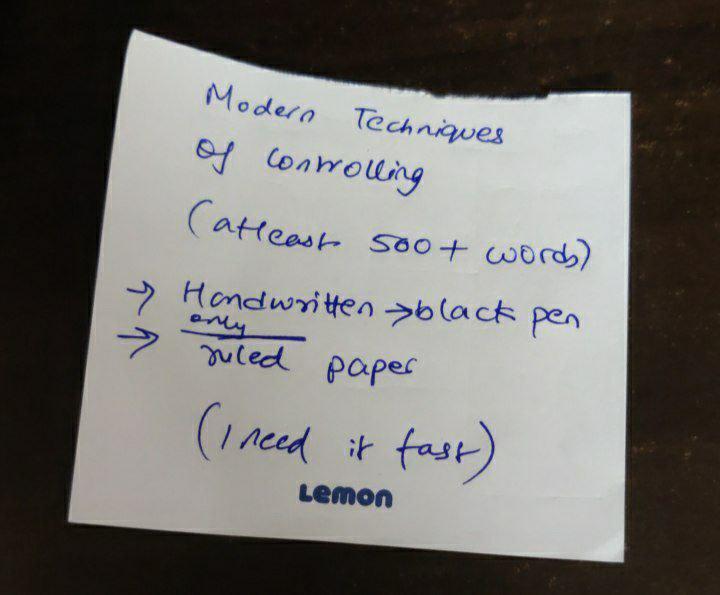 Modern Techniques
of controlling
(atleast 500+ words)
→ Handwritten → black pen
only
→ ruled paper
(I need it fast)
Lemon